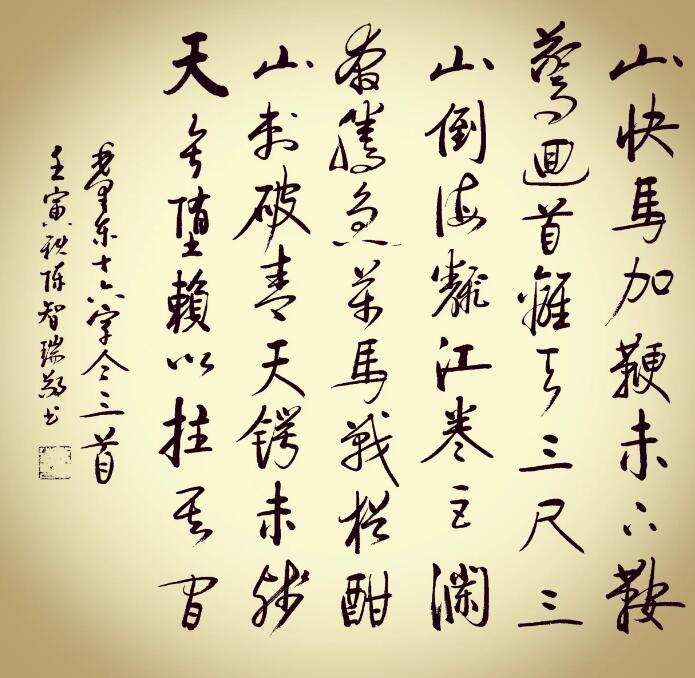 山快馬加鞭未下鞍
驚迴首離天三尺三
山倒海飜江卷巨瀾
奔騰急萬馬戰猶酣
山刺破青天鍔未殘
天欲墮賴以拄其間
毛泽东十六字令三首
壬寅秋陈智瑞敬书